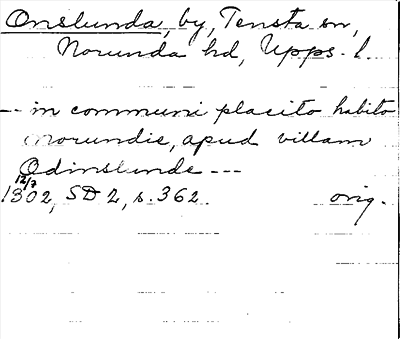 Onslunda, by, Tensta sn,
Norunda hd, Upps. l.
-- in communi placito habito
Norundie, apud villam
Odinslunde ---
12/7
1302, SD 2, s. 362. orig.